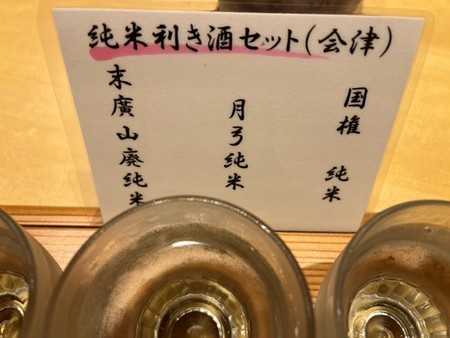 純米利き酒セット(会津)
国権 純米
月弓純米
末廣山廃純米